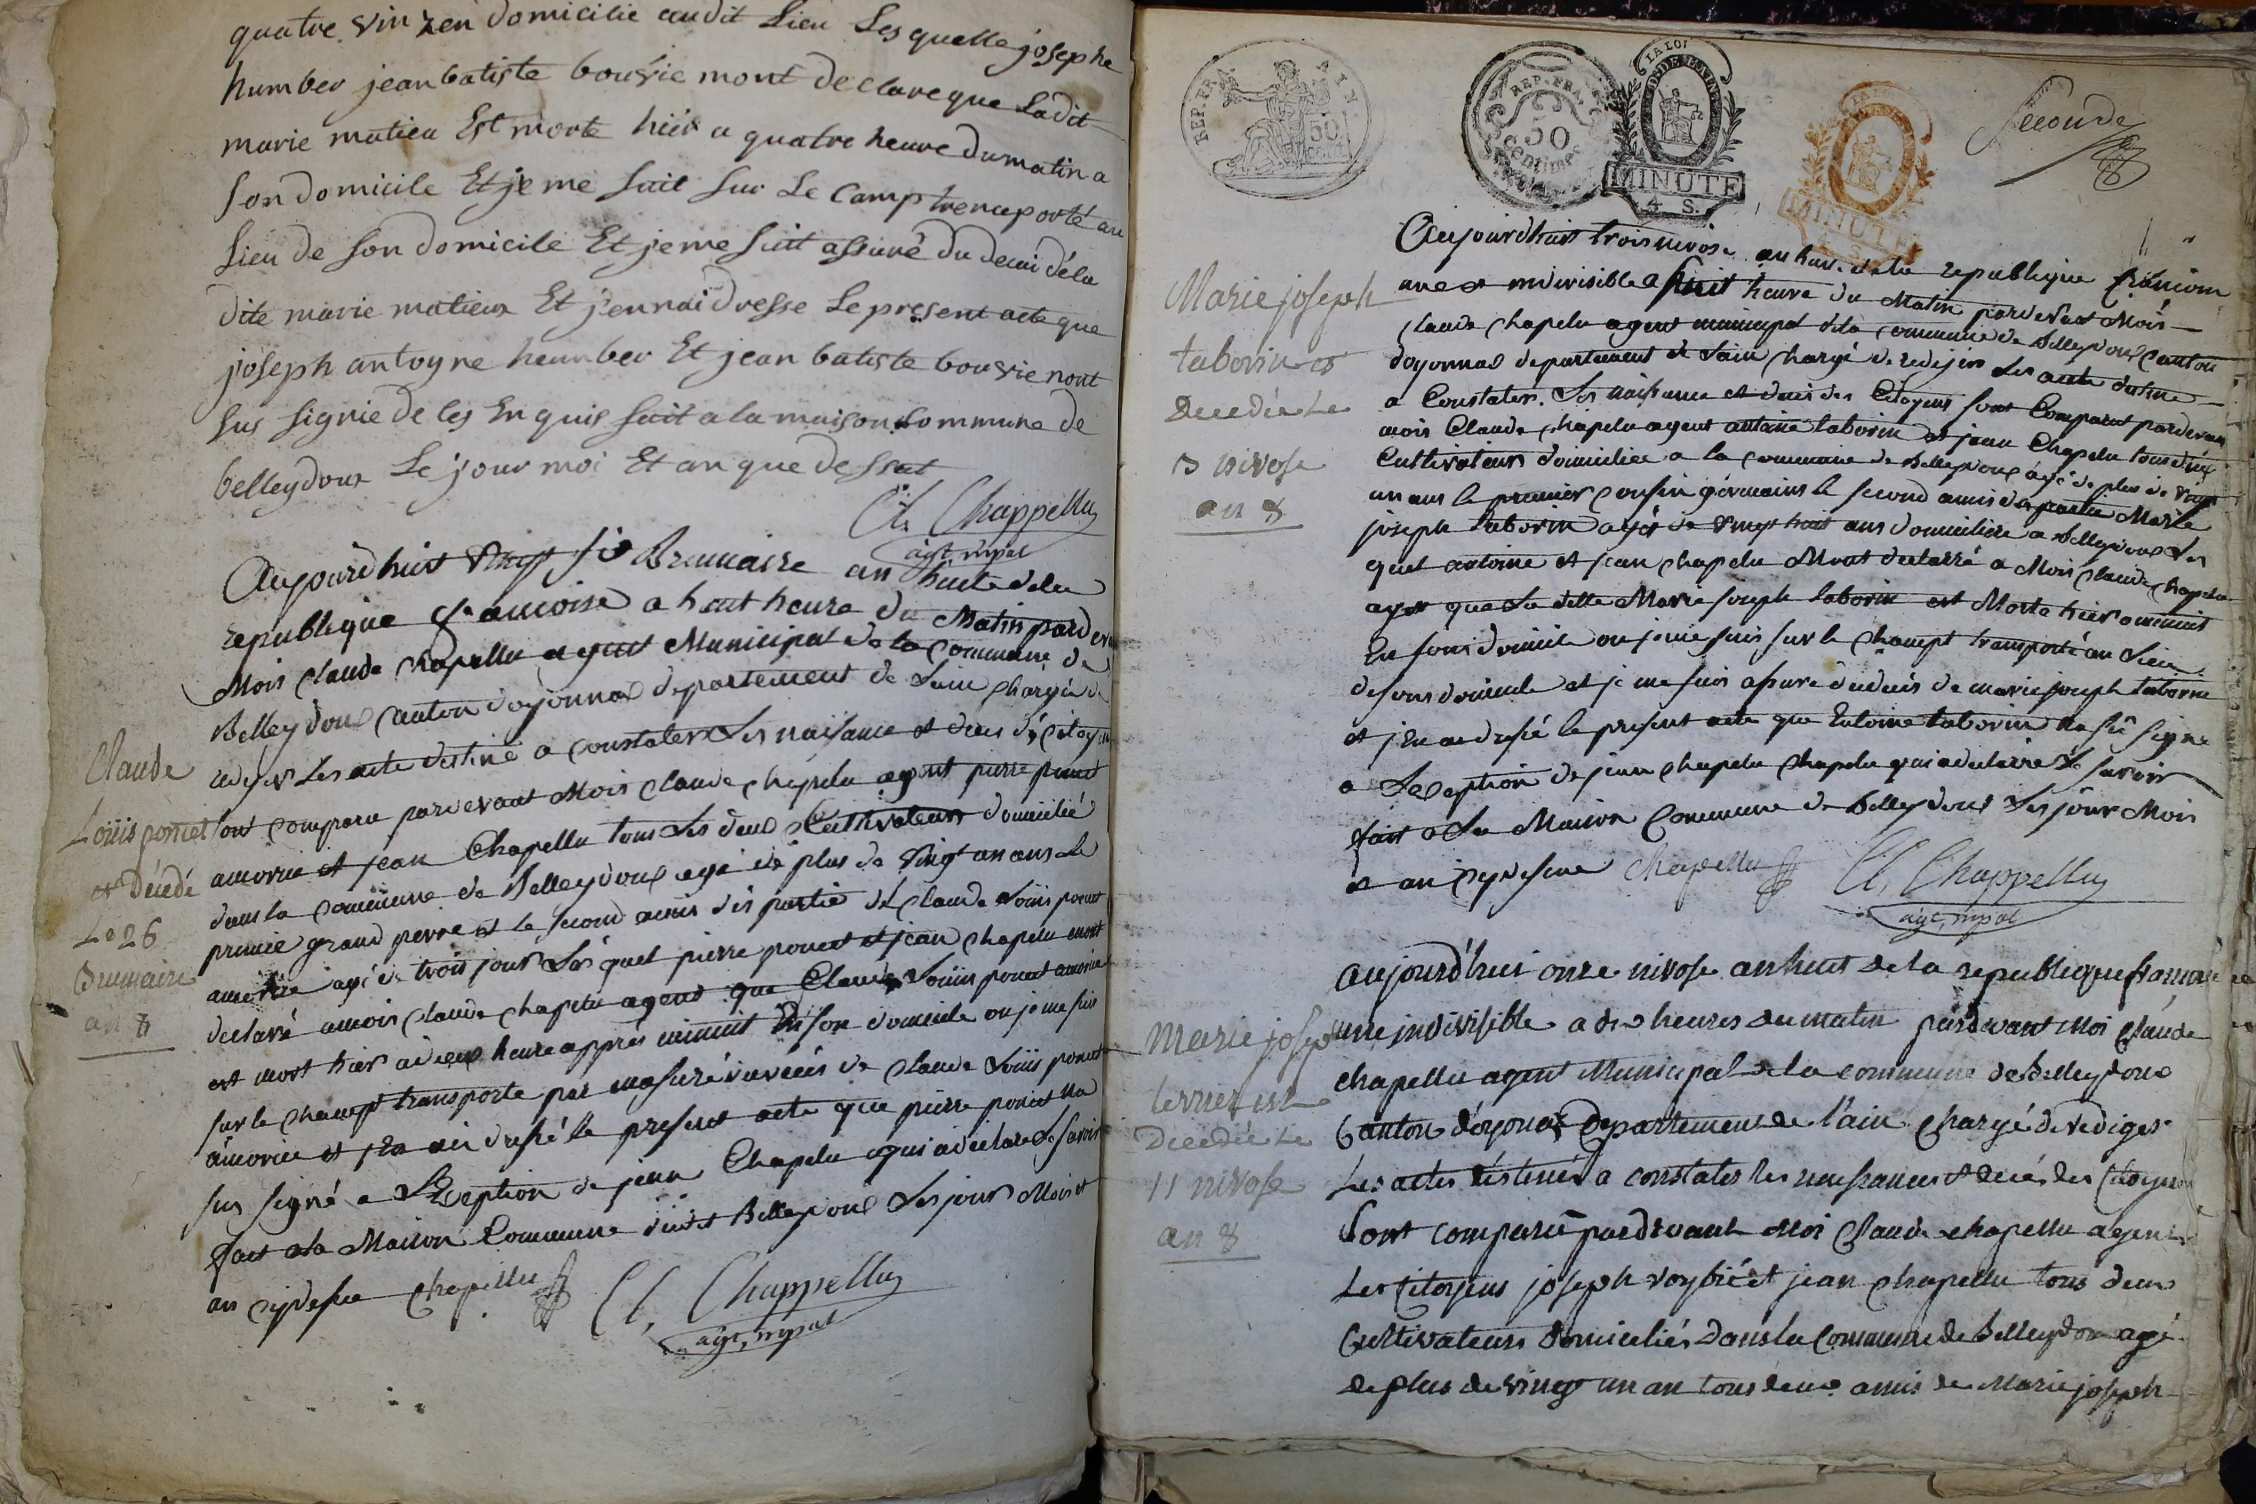 quatre vin zen domicilie audit Lieu Les quelle josephe
humber jean batiste bouvie mont declare que Ladit
marie matieu Est morte hier a quatre heure dumatin a
son domicile Et je me suit sur Le camp trenceporté au
Lieu de son domicile Et je me suit assuré du deuai déla
dite marie matieux Et j'ennai dresse Le present acte que
joseph antoyne heumber Et jean batiste bouvie nont
sus signie de les En quis fait a la maison commune de
belleydoux Le jour moi Et an que dessut
Cl, Chappelluz
agt, mpal
Aujourdhuit Vingt sis Brumaire an huite dela
republique francoise a huit heure du Matin pardevan
Mois Claude Chapellu agent Municipal de la commune de
Belleydoux Canton doyonnax departement de Lain chargée de
redijer Les acte destiné a constater Les naisance et deces des Citoyens
sont comparu pardevant Mois Claude Chapelu agent pierre poncet
amorie et jean Chapellu tous Les deux Cultivateurs domicilié
dans la commune de Belleydoux agé de plus de vingt un ans Le
premie grand perre et le second amis des partie de Claude Louis poncet
amorie agé de trois jour Les quel pierre poncet et jean Chapelu mont
declaré amois Claude Chapelu agent que Claude Louis poncet amorie
est mort hier a deux heure appres minuit En son domicile ou je me suis
sur le champt transporte par masuré du décés de Claude Louis poncet
amorie et jen ai dressé le present acte que pierre poncet na
sus signé a Lexception de jean Chapelu qui a declare Le savoir
fait a la Maison Commune dudit Belleydoux Les jour Mois et
an cydessue Chapellu Cl, Chappelluz
agt, mpal
Claude
Louis poncet
et décedé
Le 26
Brumaire
an 8
REP. FRA.
50
REP. FRA.
50
centimes
LA LOI
MINUTE
4. S.
MINUTE
Seconde
Aujourdhuit trois nivose an huit dela republique francoise
une et indivisible a huit heure du Matin pardevant Mois
Claude Chapelu agent municipal dela commune de Belleydoux canton
doyonnax departement de Lain chargé de redijer Les acte destine
a Constater Les naisance et deces des Citoyens sont Comparut pardevan
mois Claude Chapelu agent antoine taborin et jean Chapelu tous deux
Cultivateurs domiciliee a la commune de Belleydoux agé de plus de vingt
un ans le premier cousin germains le second amis des partie Marie
joseph taborin agée de vingt huit ans domicilice a Belleydoux Les
quel antoine et jean Chapelu Mont declarré a Mois Claude Chapelu
agent que La dette Marie joseph taborin est Morte hier a minuit
En sons domicile ou je me suis sur le champt transporté au Lieu
de sons domicile et je me suis assuré du decés de marie joseph taborin
et j'En ai dressé le present acte que Entoine taborin na sû signe
a Lexception de jean Chapelu Chapelu qui a declaire Le savoir
fait a La Maison Commune de Belleydoux Les jour Mois
et an cydessue Chapellu Cl, Chappelluz
agt, mpal
Marie joseph
taborin es
décedée Le
3 nivose
an 8
aujourd'hui onze nivose an huit de la republique francaise
une indivisible a dix heures du matin pardevant Moi Claude
Chapellu agent Municipal de la commune de Belleydoux
Canton d'oyonax departement de l'ain chargé de rediger
Les actes destinés a constater les naissances et decés des Citoyens
Sont comparu pardevant Moi Claude Chapellu agent
Les Citoyens joseph voybié et jean Chapellu tous deux
Cultivateurs domiciliés dans la commune de Belleydoux agé
de plus de vingt un an tous deux amis de Marie joseph
Marie joseph
est
décedée Le
11 nivose
an 8